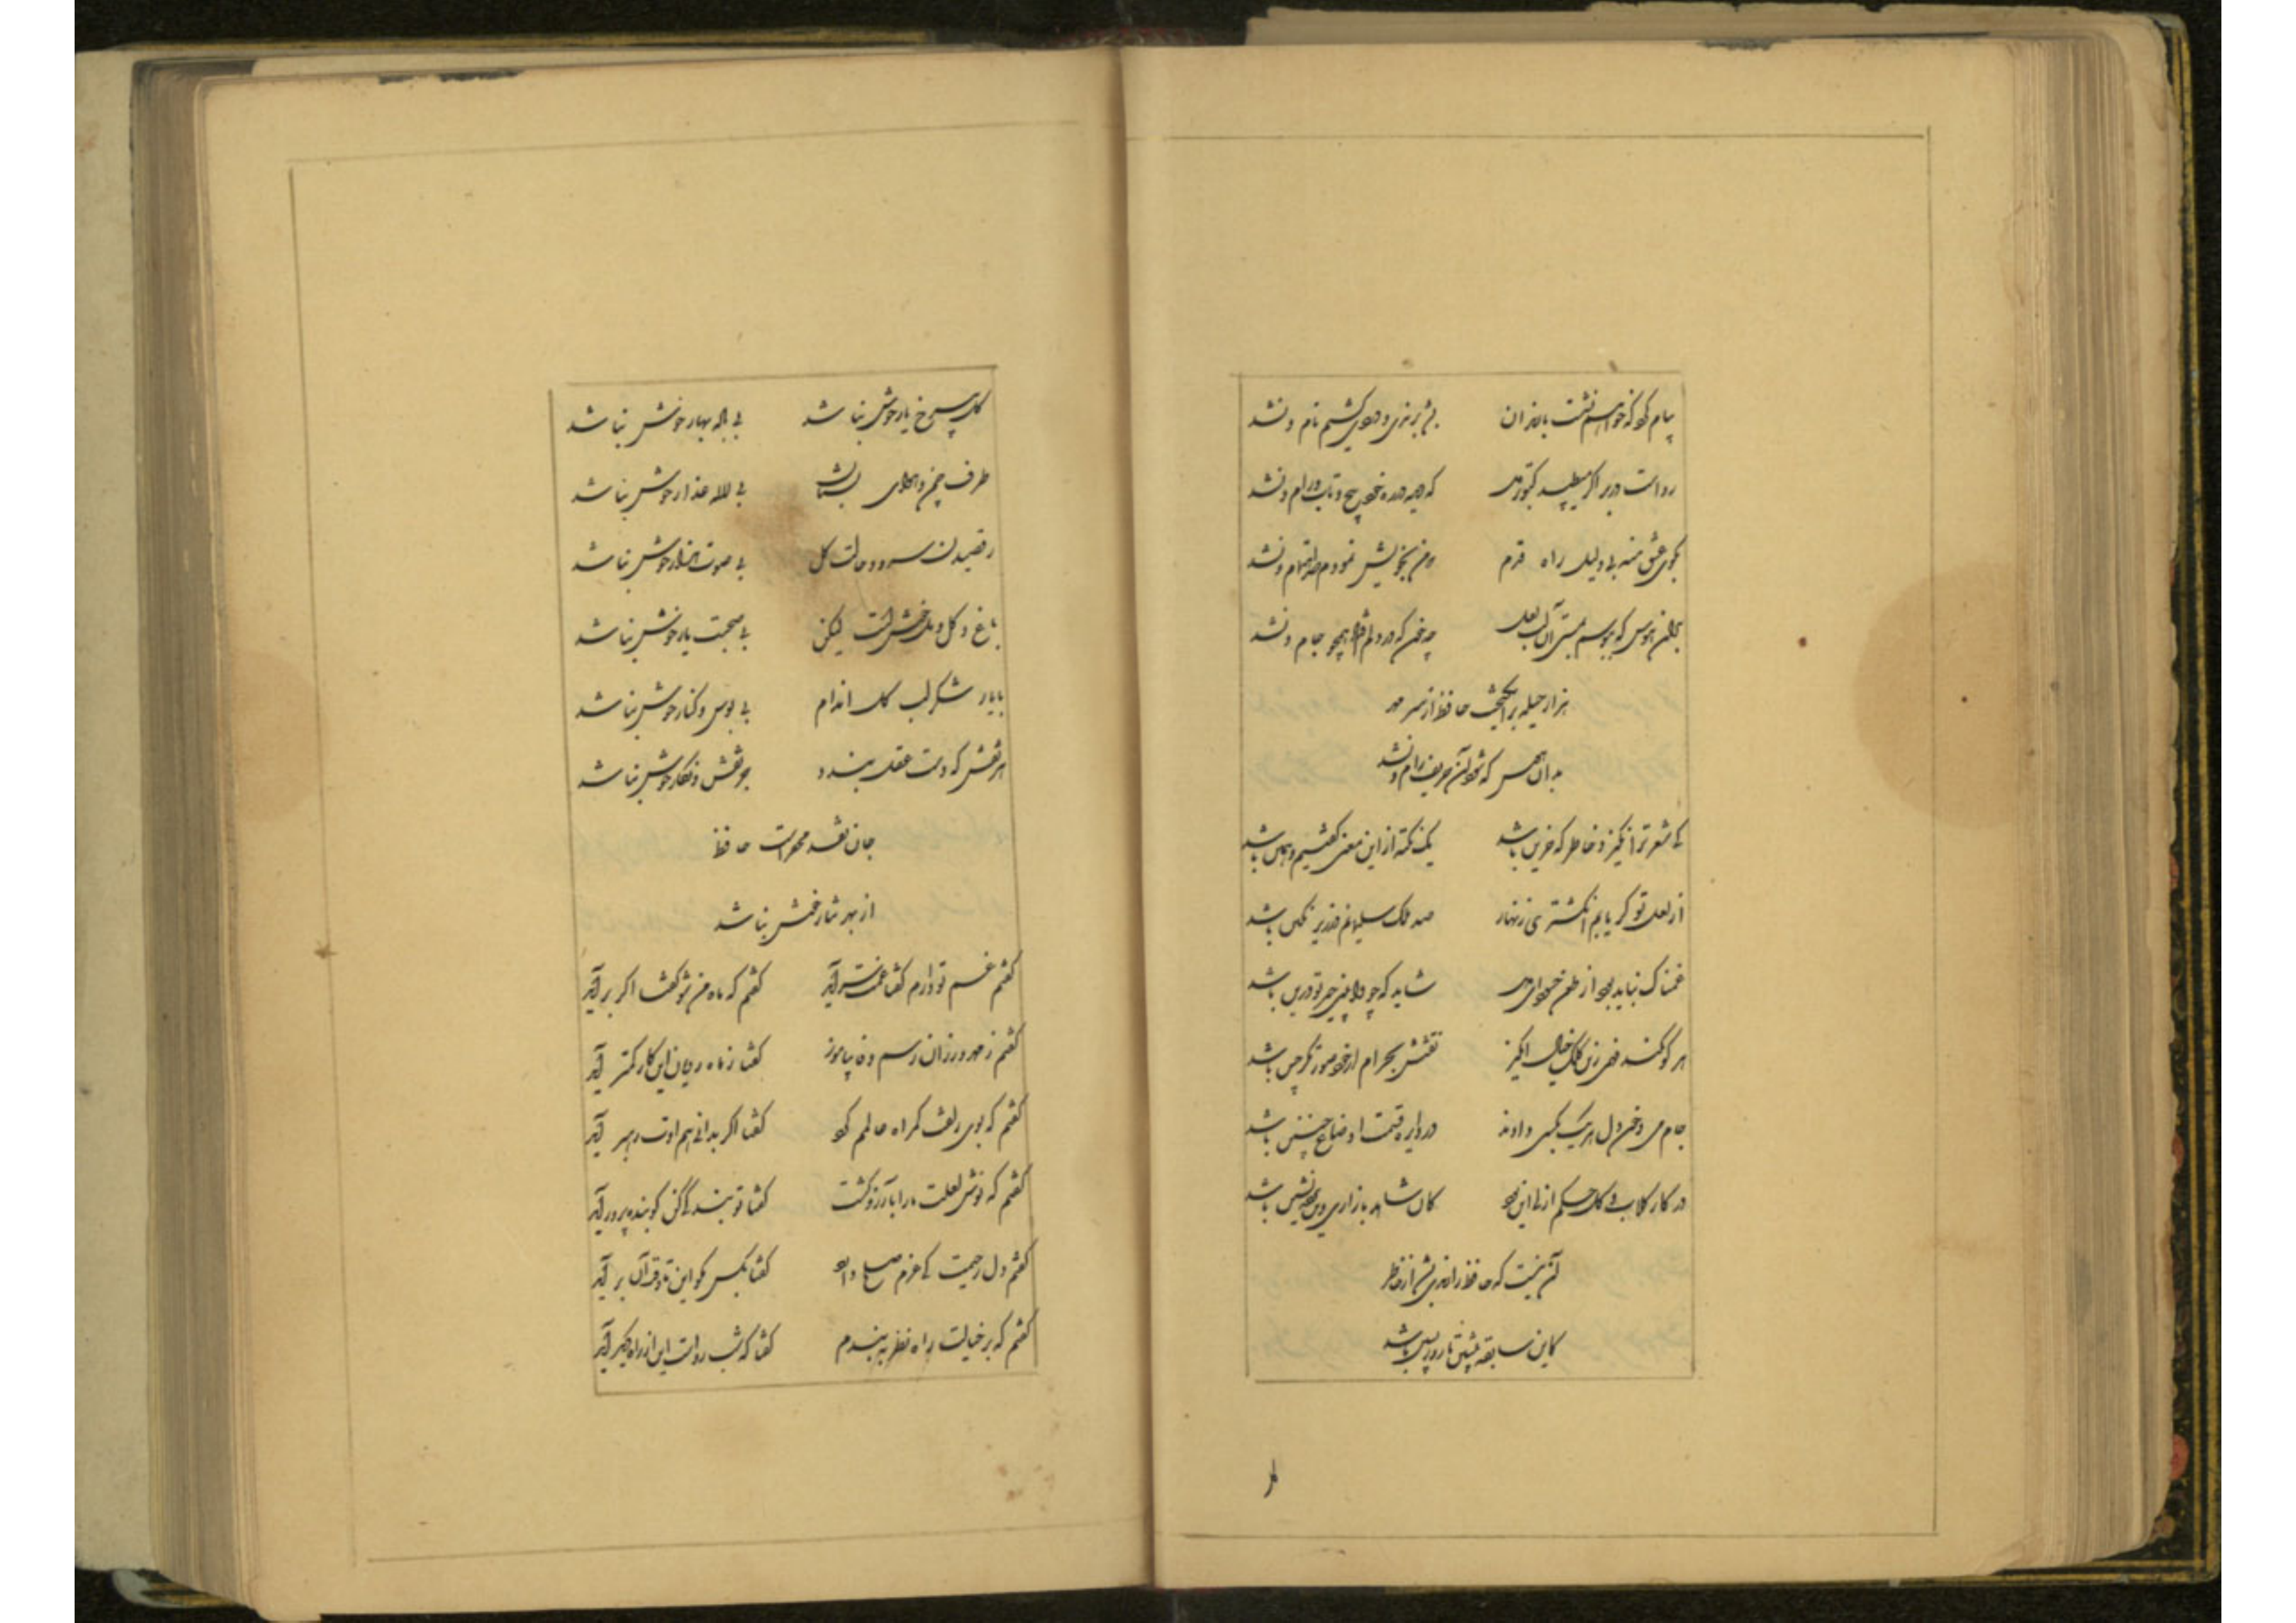 پیام کرد که خواهم نشست با رندان بشد برندی و دردی کشیم نام و نشد
رواست در بر اگر میطپد کبوتر دل که دید در ره خود پیچ و تاب دام و نشد
بکوی عشق منه بی دلیل راه قدم که من بخویش نمودم صد اهتمام و نشد
بدان هوس که ببوسم بمستی آن لب لعل چه خون که در دلم افتاد همچو جام و نشد
هزار حیله برانگیخت حافظ از سر مهر
بدان هوس که شود آن حریف رام و نشد
کی شعر تر انگیزد خاطر که حزین باشد یک نکته از این معنی گفتیم و همین باشد
از لعل تو گر یابم انگشتری زنهار صد ملک سلیمانم در زیر نگین باشد
غمناک نباید بود از طعن حسود ای دل شاید که چو وابینی خیر تو درین باشد
هر کو نکند فهمی زین کلک خیال انگیز نقشش بحرام ار خود صورتگر چین باشد
جام می و خون دل هر یک بکسی دادند در دایره قسمت اوضاع چنین باشد
در کار گلاب و گل حکم ازلی این بود کان شاهد بازاری وین پرده نشین باشد
آن نیست که حافظ را رندی بشد از خاطر
کاین سابقه پیشین تا روز پسین باشد
گل بی رخ یار خوش نباشد بی باده بهار خوش نباشد
طرف چمن و هوای بستان بی لاله عذار خوش نباشد
رقصیدن سرو و حالت گل بی صوت هزار خوش نباشد
باغ و گل و مل خوشست لیکن بی صحبت یار خوش نباشد
با یار شکر لب گل اندام بی بوس و کنار خوش نباشد
هر نقش که دست عقل بندد جز نقش و نگار خوش نباشد
جان نقد محقرست حافظ
از بهر نثار خوش نباشد
گفتم غم تو دارم گفتا غمت سر آید گفتم که ماه من شو گفتا اگر برآید
گفتم ز مهرورزان رسم وفا بیاموز گفتا ز ماه رویان این کار کمتر آید
گفتم که بوی زلفت گمراه عالمم کرد گفتا اگر بدانی هم اوت رهبر آید
گفتم که نوش لعلت ما را بآرزو کشت گفتا تو بندگی کن کو بنده پرور آید
گفتم دل رحیمت کی عزم صلح دارد گفتا بکس مگو این تا وقت آن برآید
گفتم که بر خیالت راه نظر ببندم گفتا که شب روست این از راه دیگر آید